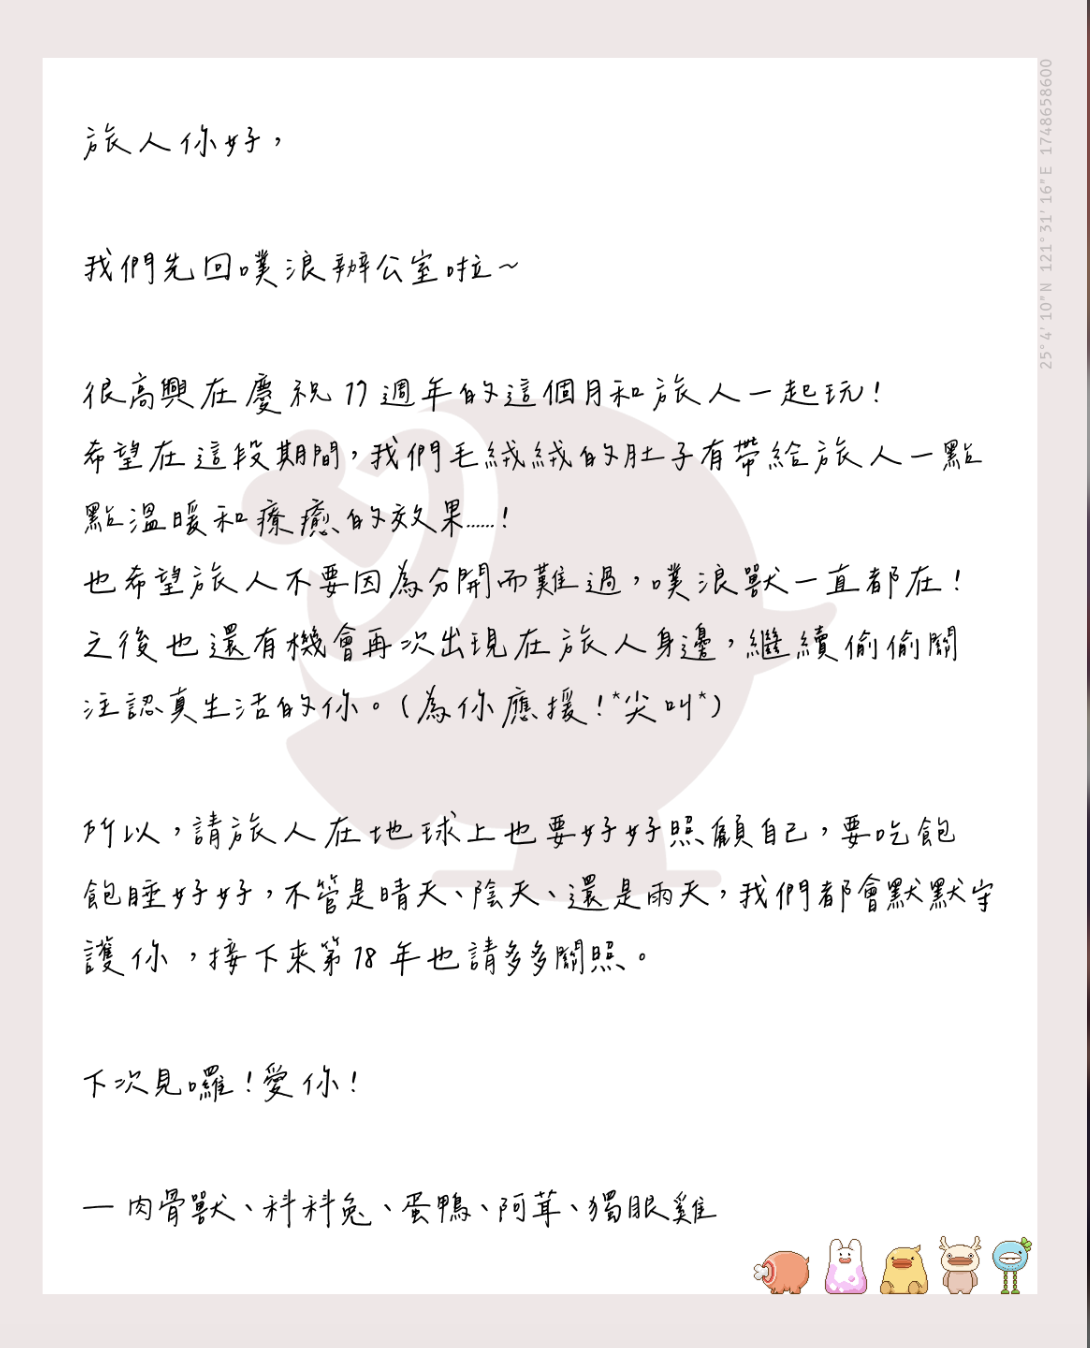 旅人你好，
我們先回噗浪辦公室啦～
很高興在慶祝17週年的這個月和旅人一起玩！
希望在這段期間，我們毛絨絨的肚子有帶給旅人一點
點溫暖和療癒的效果......！
也希望旅人不要因為分開而難過，噗浪獸一直都在！
之後也還有機會再次出現在旅人身邊，繼續偷偷關
注認真生活的你。(為你應援！*尖叫*)
所以，請旅人在地球上也要好好照顧自己，要吃飽
飽睡好好，不管是晴天、陰天、還是雨天，我們都會默默守
護你，接下來第18年也請多多關照。
下次見囉！愛你！
— 肉骨獸、科科兔、蛋鴨、阿茸、獨眼雞
25°4'10"N 121°31'16"E 1748658600